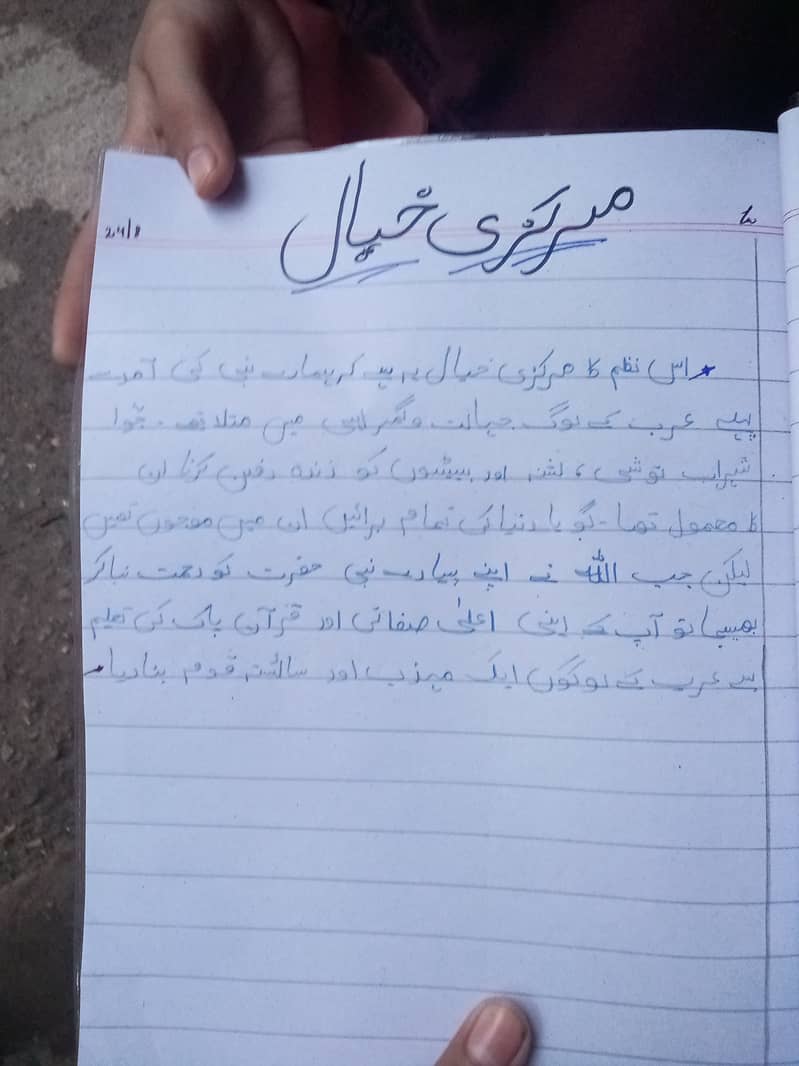 مرکزی خیال
24/8
اس نظم کا مرکزی خیال یہ ہے کہ ہمارے نبی کی آمد سے
پہلے عرب کے لوگ جہالت و گمراہی میں متلا تھے۔ جوا
شراب نوشی، لشہ اور بیٹیوں کو زندہ دفن کرنا ان
کا معمول تھا۔ گویا دنیا کی تمام برائیں ان میں موجوں تھیں
لیکن جب اللہ نے اپنے پیارے نبی حضرت کو رحمت بناکر
بھیجا تو آپ کے اپنی اعلیٰ صفاتی اور قرآن پاک کی تعلیم
سے عرب کے لوگوں ایک مہزب اور سائستہ قوم بنا دیا